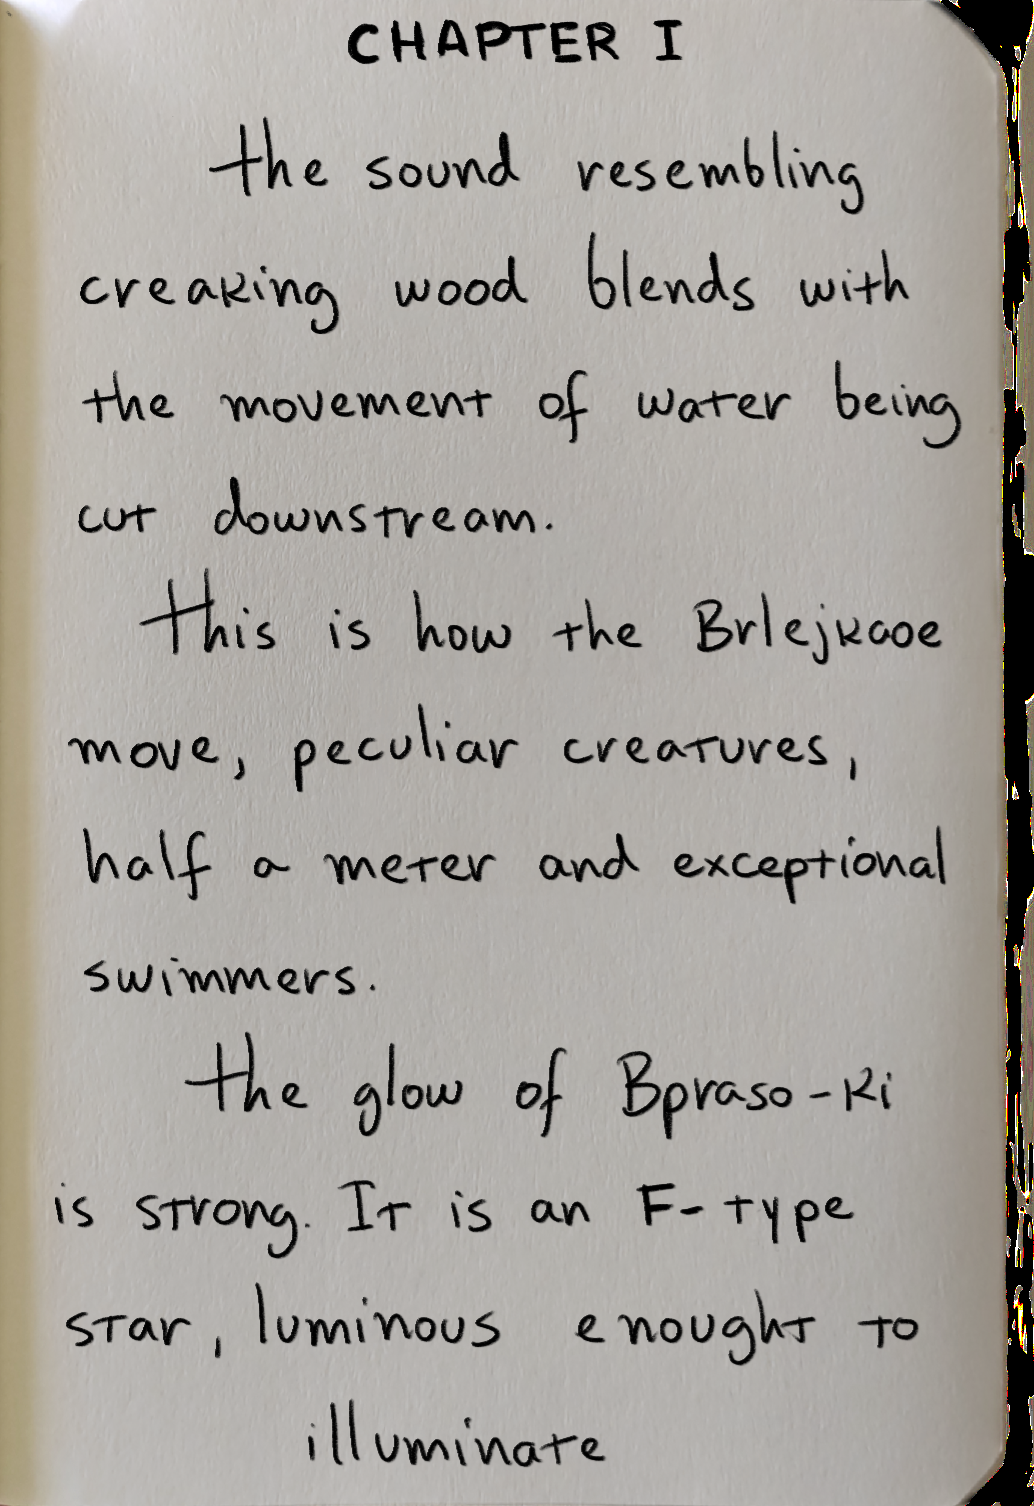 CHAPTER I
the sound resembling
creaking wood blends with
the movement of water being
cut downstream.
This is how the Brlejkaoe
move, peculiar creatures,
half a meter and exceptional
swimmers.
the glow of Bpraso-Ki
is strong. It is an F-type
star, luminous enought to
illuminate